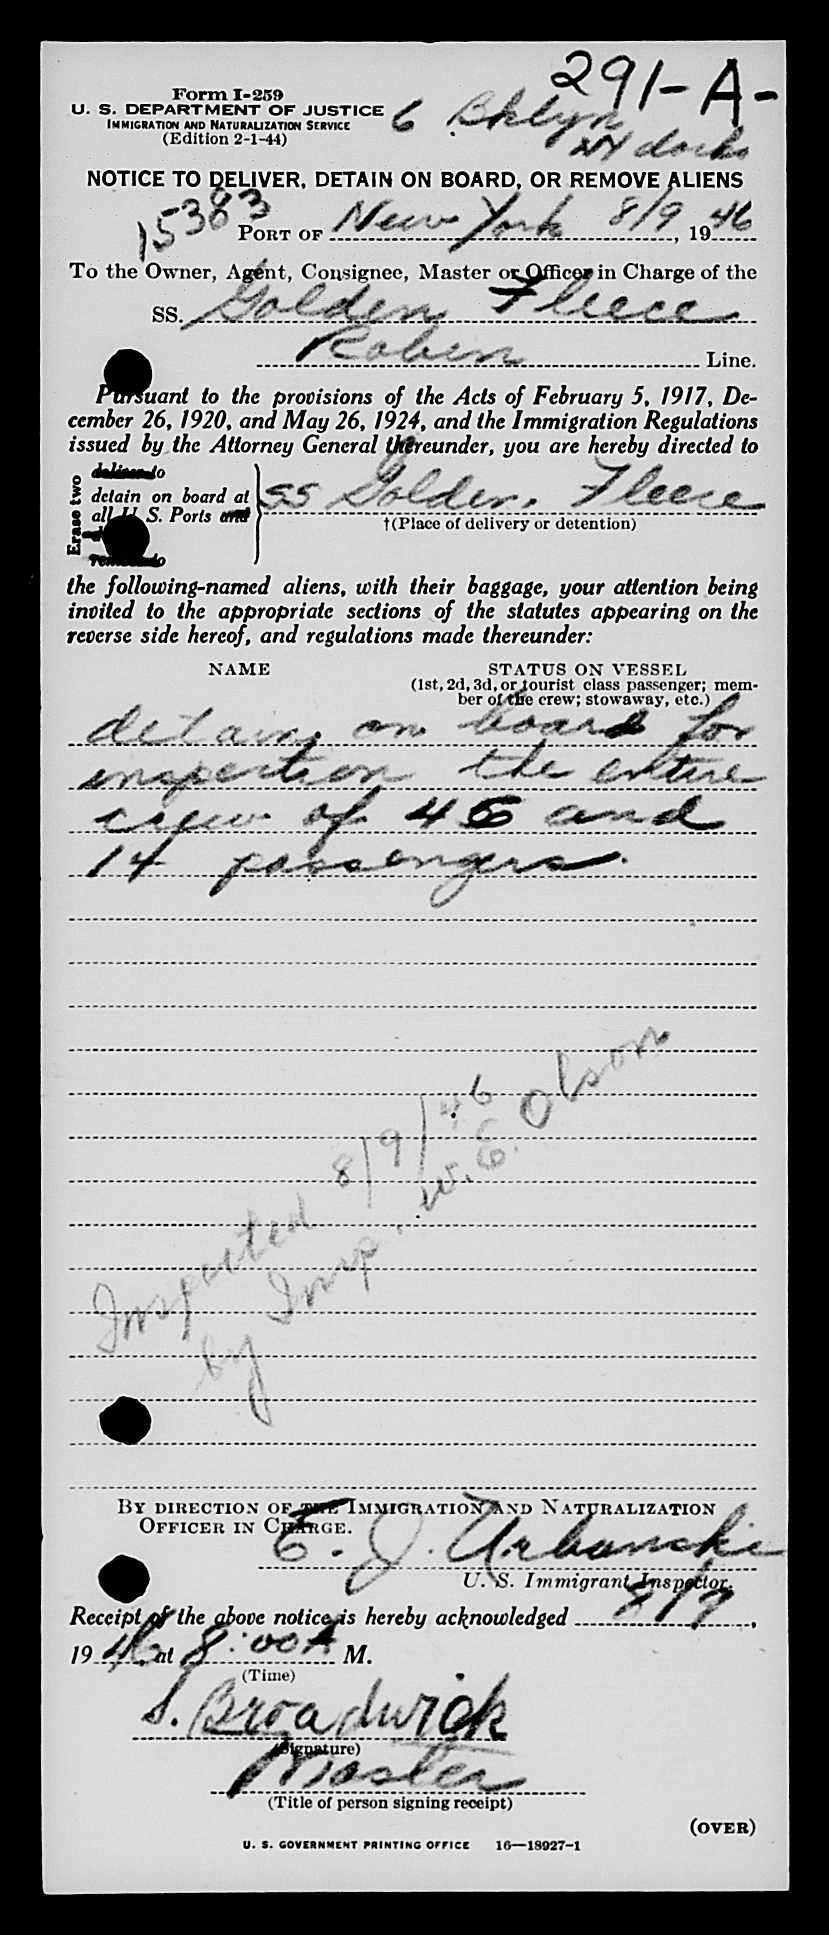 291-A-
Form I-259
U. S. DEPARTMENT OF JUSTICE
IMMIGRATION AND NATURALIZATION SERVICE
(Edition 2-1-44)
6 Bklyn
NY docks
NOTICE TO DELIVER, DETAIN ON BOARD, OR REMOVE ALIENS
15383
PORT OF New York 8/9, 1946
To the Owner, Agent, Consignee, Master or Officer in Charge of the
SS. Golden Fleece
Robin Line.
Pursuant to the provisions of the Acts of February 5, 1917, De-
cember 26, 1920, and May 26, 1924, and the Immigration Regulations
issued by the Attorney General thereunder, you are hereby directed to
Erase two
deliver to
detain on board at
all U. S. Ports and
remove to
SS Golden Fleece
†(Place of delivery or detention)
the following-named aliens, with their baggage, your attention being
invited to the appropriate sections of the statutes appearing on the
reverse side hereof, and regulations made thereunder:
NAME STATUS ON VESSEL
(1st, 2d, 3d, or tourist class passenger; mem-
ber of the crew; stowaway, etc.)
detain on board for
inspection the entire
crew of 46 and
14 passengers.
Inspected 8/9/46
by Insp. W. E. Olson
BY DIRECTION OF THE IMMIGRATION AND NATURALIZATION
OFFICER IN CHARGE.
E. J. Urbanski
U. S. Immigrant Inspector.
Receipt of the above notice is hereby acknowledged 8/9,
1946, at 8:00 A M.
(Time)
S. Broadwick
(Signature)
Master
(Title of person signing receipt)
(OVER)
U. S. GOVERNMENT PRINTING OFFICE 16—18927-1